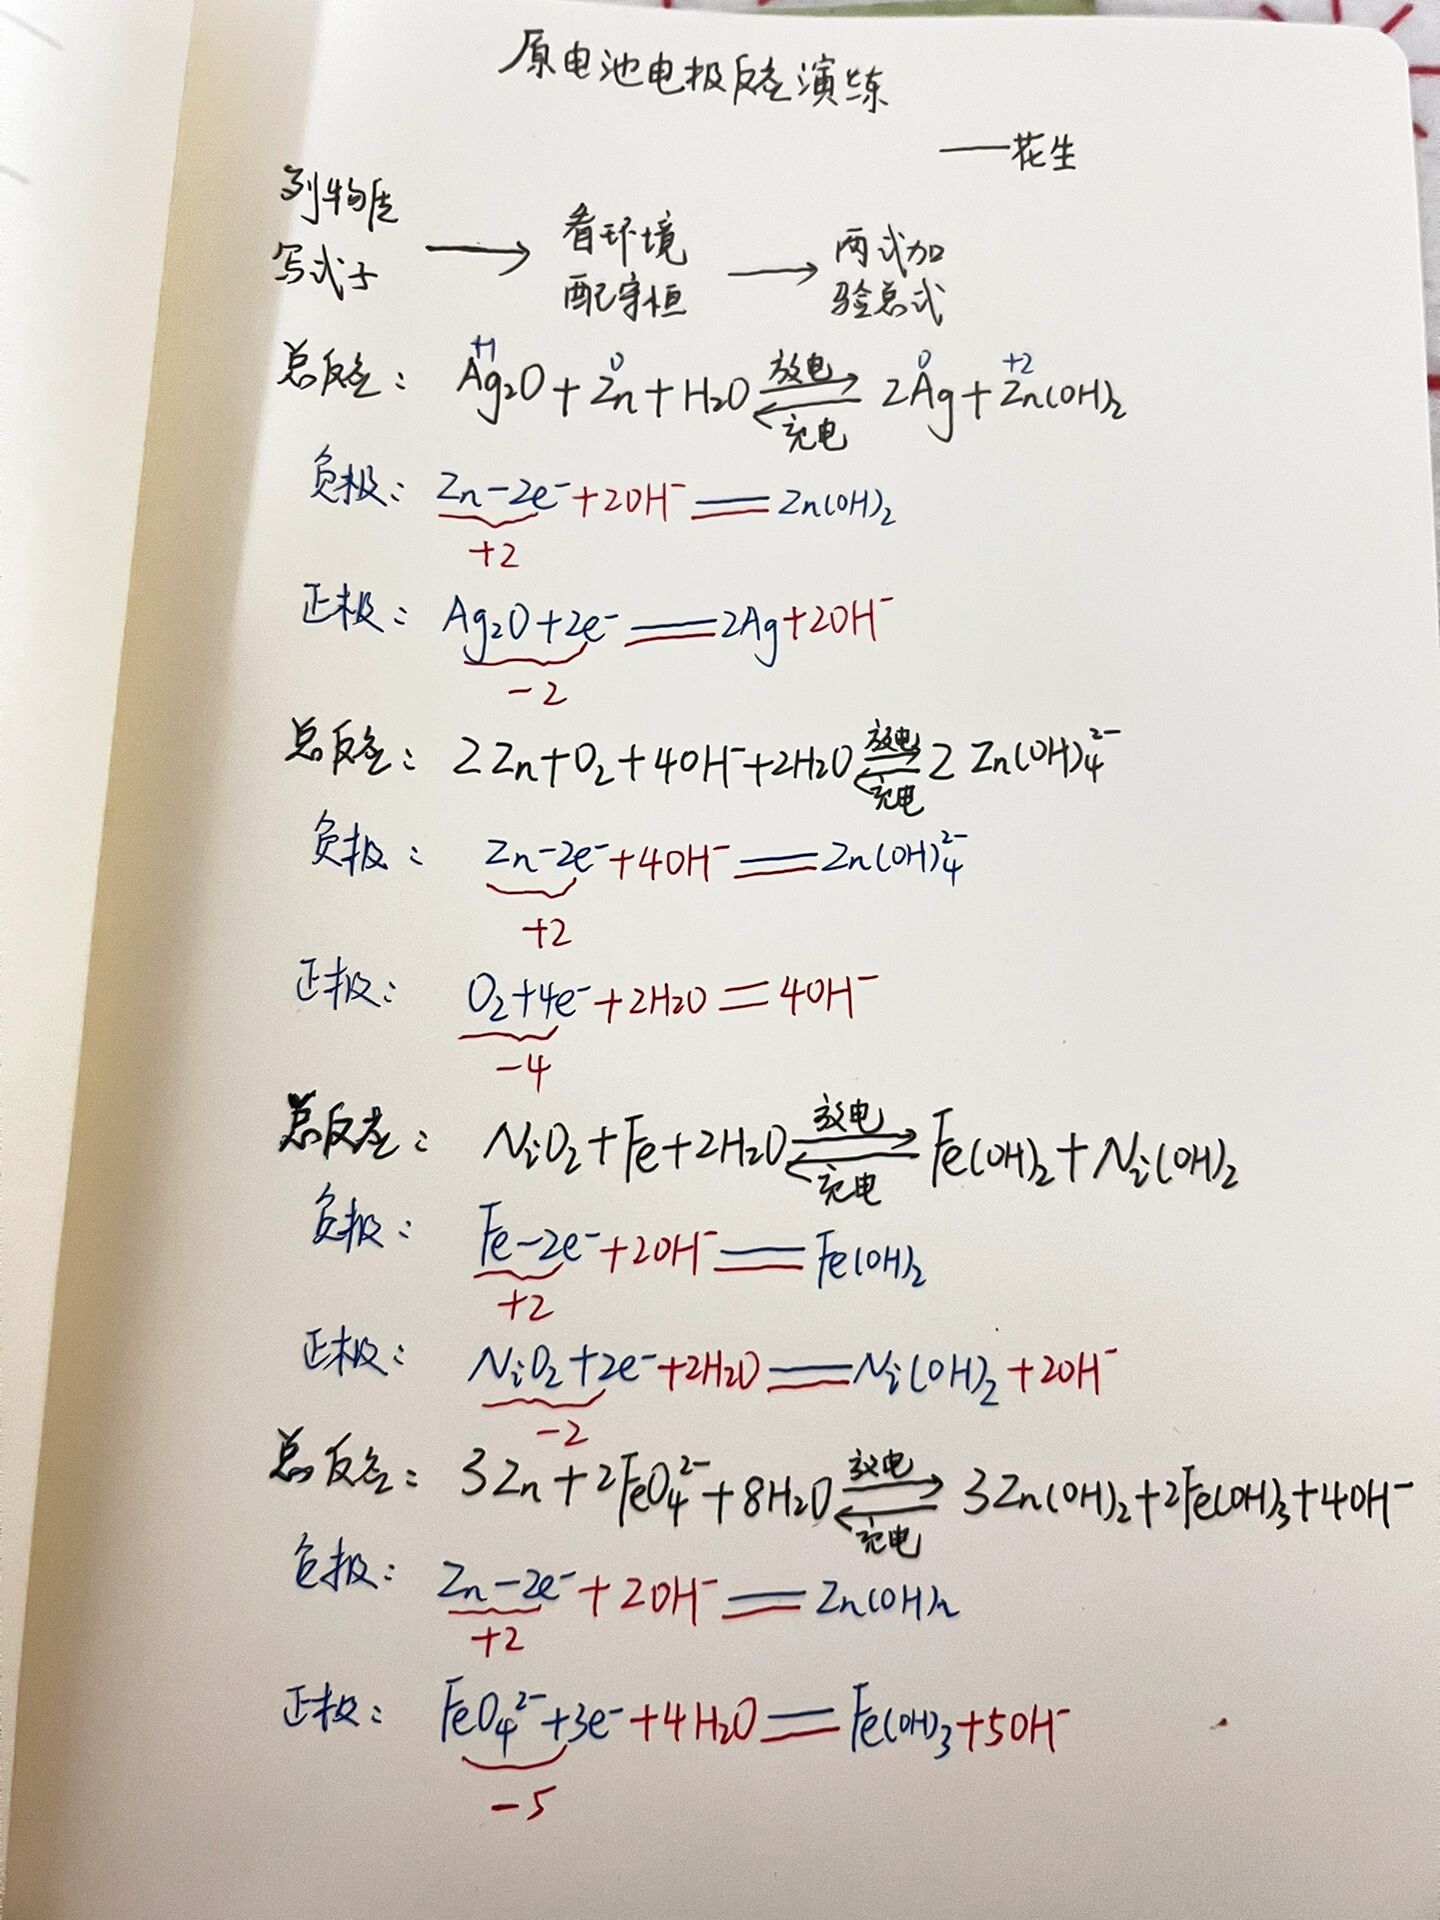 原电池电极反应演练
——花生
列物质 写式子 → 看环境 配守恒 → 两式加 验总式
+1 0 0 +2
总反应：Ag₂O+Zn+H₂O ⇌ 2Ag+Zn(OH)₂
放电
充电
负极：Zn-2e⁻+2OH⁻＝Zn(OH)₂
+2
正极：Ag₂O+2e⁻＝2Ag+2OH⁻
-2
总反应：2Zn+O₂+4OH⁻+2H₂O ⇌ 2Zn(OH)₄²⁻
放电
充电
负极：Zn-2e⁻+4OH⁻＝Zn(OH)₄²⁻
+2
正极：O₂+4e⁻+2H₂O＝4OH⁻
-4
总反应：NiO₂+Fe+2H₂O ⇌ Fe(OH)₂+Ni(OH)₂
放电
充电
负极：Fe-2e⁻+2OH⁻＝Fe(OH)₂
+2
正极：NiO₂+2e⁻+2H₂O＝Ni(OH)₂+2OH⁻
-2
总反应：3Zn+2FeO₄²⁻+8H₂O ⇌ 3Zn(OH)₂+2Fe(OH)₃+4OH⁻
放电
充电
负极：Zn-2e⁻+2OH⁻＝Zn(OH)₂
+2
正极：FeO₄²⁻+3e⁻+4H₂O＝Fe(OH)₃+5OH⁻
-5